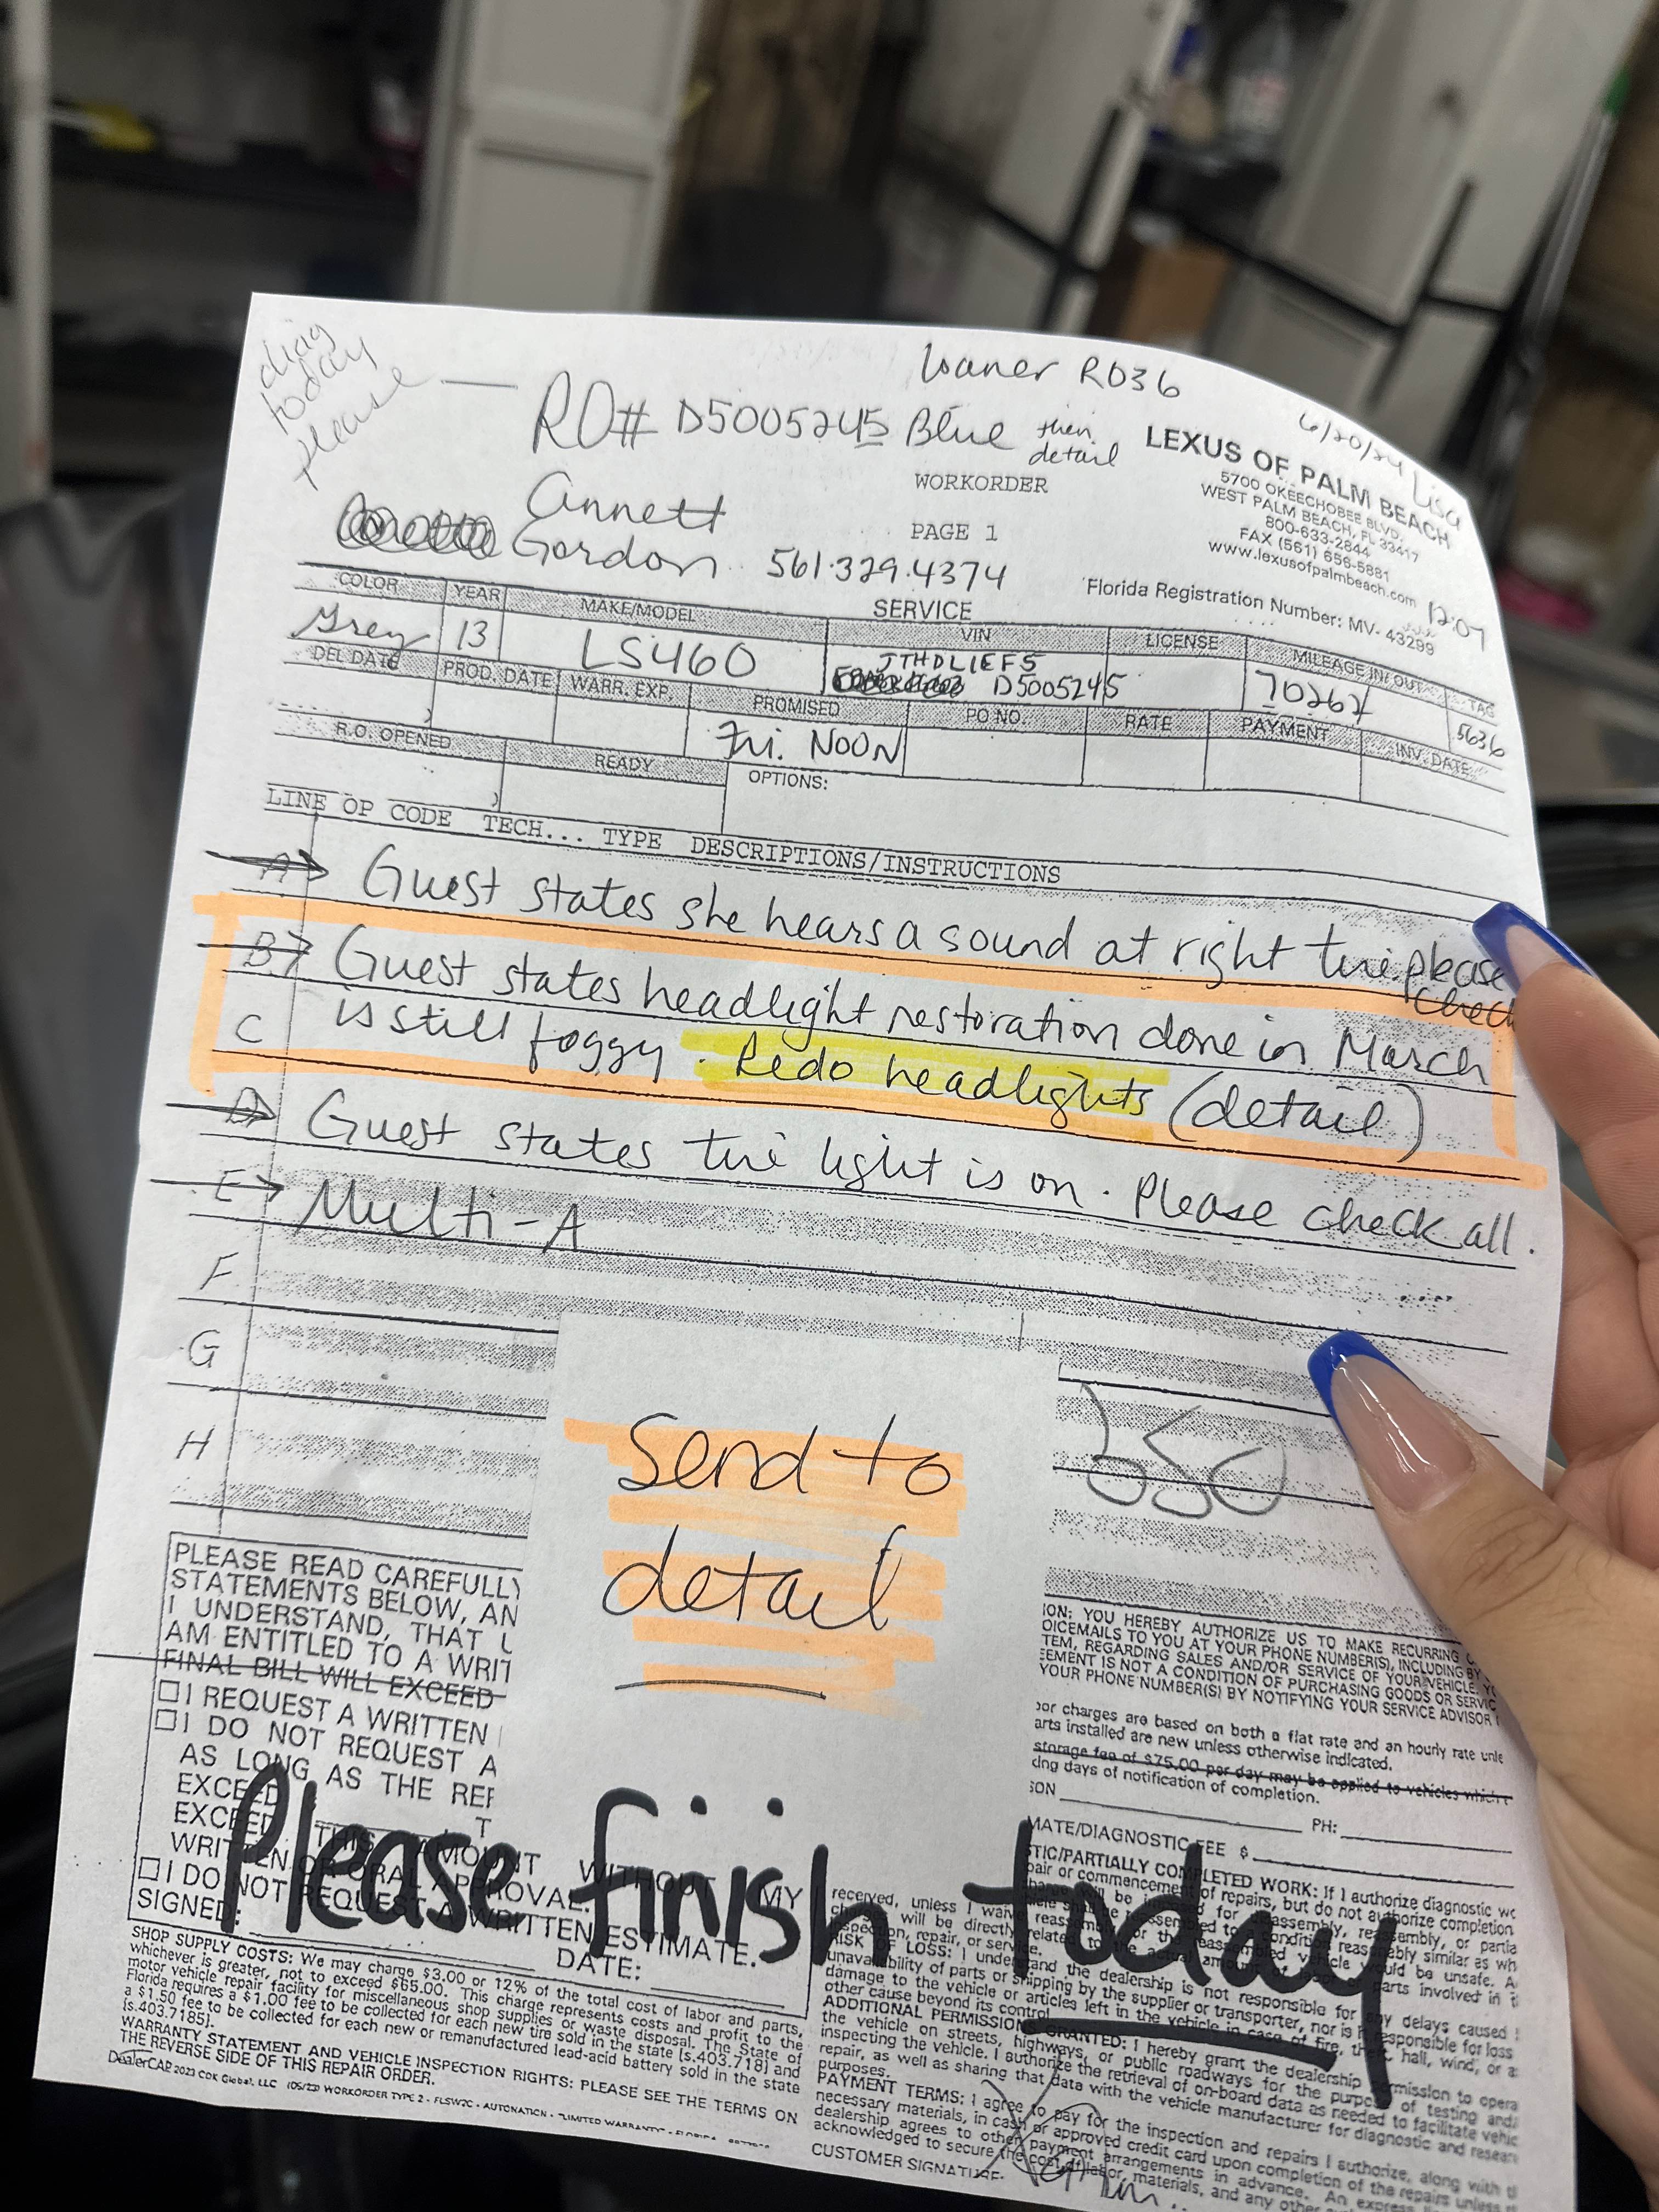 diag
today
please
loaner R036
RO# D5005245 Blue then
detail
6/20/24 Lisa
LEXUS OF PALM BEACH
5700 OKEECHOBEE BLVD,
WEST PALM BEACH, FL 33417
800-633-2844
FAX (561) 656-5881
www.lexusofpalmbeach.com
WORKORDER
Annett
PAGE 1
Gordon 561.329.4374
Florida Registration Number: MV- 43299
12:07
SERVICE
COLOR YEAR MAKE/MODEL VIN LICENSE MILEAGE IN/OUT TAG
Grey 13 LS460 JTHDL1EF5
D5005245 70262 5636
DEL DATE PROD. DATE WARR. EXP. PROMISED PO NO. RATE PAYMENT INV. DATE
Fri. NOON
R.O. OPENED READY OPTIONS:
LINE OP CODE TECH... TYPE DESCRIPTIONS/INSTRUCTIONS
A Guest states she hears a sound at right tire please
check
B Guest states headlight restoration done in March
C is still foggy. Redo headlights (detail)
D Guest states tire light is on. Please check all.
E Multi-A
F
G
H
Send to
detail
PLEASE READ CAREFULLY
STATEMENTS BELOW, AN
I UNDERSTAND, THAT U
AM ENTITLED TO A WRIT
FINAL BILL WILL EXCEED
I REQUEST A WRITTEN
I DO NOT REQUEST A
AS LONG AS THE REP
EXCEED
EXCEED THIS AMOUNT WITHOUT MY
WRITTEN OR ORAL APPROVAL.
I DO NOT REQUEST A WRITTEN ESTIMATE.
SIGNED:
DATE:
ION: YOU HEREBY AUTHORIZE US TO MAKE RECURRING
OICEMAILS TO YOU AT YOUR PHONE NUMBER(S), INCLUDING BY
TEM, REGARDING SALES AND/OR SERVICE OF YOUR VEHICLE.
EEMENT IS NOT A CONDITION OF PURCHASING GOODS OR SERVIC
YOUR PHONE NUMBER(S) BY NOTIFYING YOUR SERVICE ADVISOR
bor charges are based on both a flat rate and an hourly rate unle
arts installed are new unless otherwise indicated.
storage fee of $75.00 per day may be applied to vehicles which
ding days of notification of completion.
SON PH:
MATE/DIAGNOSTIC FEE $
Please finish today
STIC/PARTIALLY COMPLETED WORK: If I authorize diagnostic wo
pair or commencement of repairs, but do not authorize completion
SHOP SUPPLY COSTS: We may charge $3.00 or 12% of the total cost of labor and parts,
whichever is greater, not to exceed $65.00. This charge represents costs and profit to the
motor vehicle repair facility for miscellaneous shop supplies or waste disposal. The State of
Florida requires a $1.00 fee to be collected for each new tire sold in the state [s.403.718] and
a $1.50 fee to be collected for each new or remanufactured lead-acid battery sold in the state
[s.403.7185].
WARRANTY STATEMENT AND VEHICLE INSPECTION RIGHTS: PLEASE SEE THE TERMS ON
THE REVERSE SIDE OF THIS REPAIR ORDER.
DealerCAP 2023 CDK Global, LLC (05/23) WORKORDER TYPE 2 - FLSW2C - AUTONATION
RISK OF LOSS: I understand the dealership is not responsible for any delays caused
unavailability of parts or shipping by the supplier or transporter, nor is it responsible for loss
damage to the vehicle or articles left in the vehicle in case of fire, theft, hail, wind, or
other cause beyond its control.
ADDITIONAL PERMISSIONS GRANTED: I hereby grant the dealership permission to opera
the vehicle on streets, highways, or public roadways for the purpose of testing and/
inspecting the vehicle. I authorize the retrieval of on-board data as needed to facilitate vehic
repair, as well as sharing that data with the vehicle manufacturer for diagnostic and resear
purposes.
PAYMENT TERMS: I agree to pay for the inspection and repairs I authorize, along with
necessary materials, in cash or approved credit card upon completion of the repairs unless
dealership agrees to other payment arrangements in advance. An express
acknowledged to secure the cost of labor, materials, and any other
CUSTOMER SIGNATURE